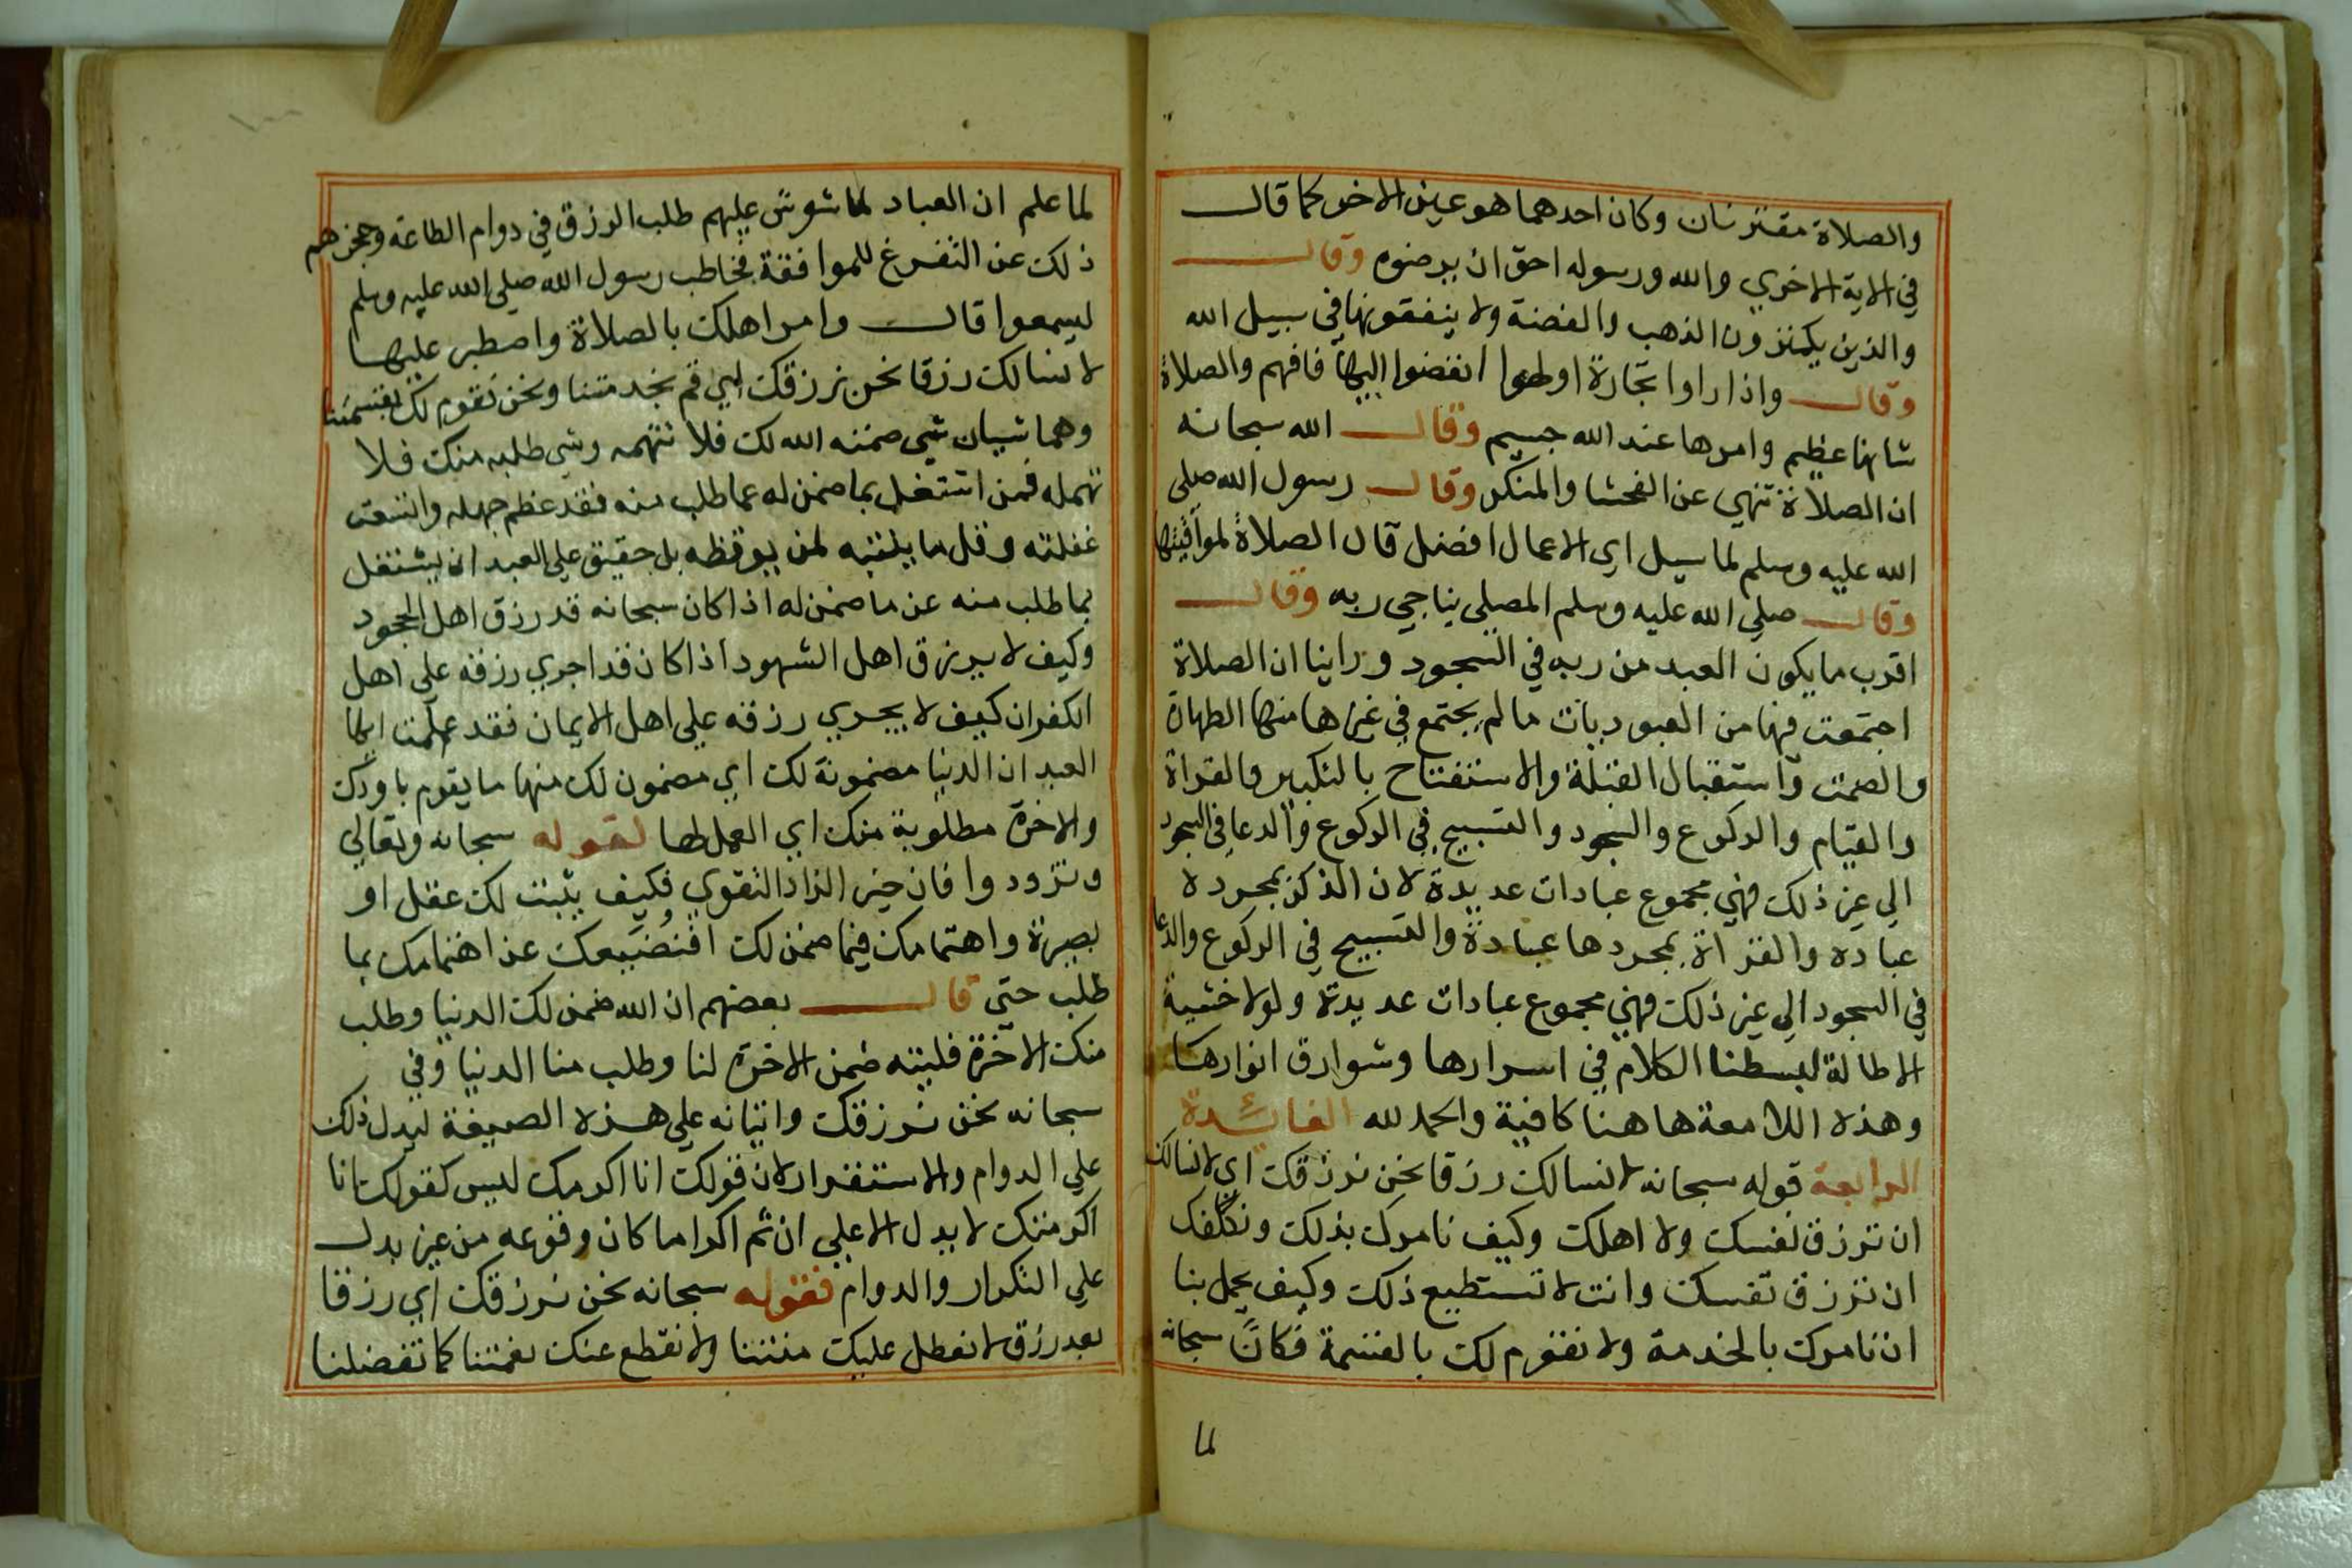 والصلاة مقترنان وكان احدهما هو عين الاخر كما قال
في الاية الاخري والله ورسوله احق ان يرضوه وقال
والذين يكنزون الذهب والفضة ولا ينفقونها في سبيل الله
وقال واذا راوا تجارة او لهوا انفضوا اليها فافهم والصلاة
شانها عظيم وامرها عند الله جسيم وقال الله سبحانه
ان الصلاة تنهي عن الفحشا والمنكر وقال رسول الله صلي
الله عليه وسلم لما سيل اي الاعمال افضل قال الصلاة لمواقيتها
وقال صلي الله عليه وسلم المصلي يناجي ربه وقال
اقرب ما يكون العبد من ربه في السجود وراينا ان الصلاة
اجتمعت فيها من العبوديات ما لم يجتمع في غيرها منها الطهارة
والصمت واستقبال القبلة والاستفتاح بالتكبير والقراة
والقيام والركوع والسجود والتسبيح في الركوع والدعا في السجود
الي غير ذلك فهي مجموع عبادات عديدة لان الذكر بمجرده
عبادة والقراة بمجردها عبادة والتسبيح في الركوع والدعا
في السجود الي غير ذلك فهي مجموع عبادات عديدة ولولا خشية
الاطالة لبسطنا الكلام في اسرارها وشوارق انوارها
وهذه اللامعة هاهنا كافية والحمد لله الفائدة
الرابعة قوله سبحانه لا نسالك رزقا نحن نرزقك اي لا نسالك
ان ترزق نفسك ولا اهلك وكيف نامرك بذلك ونكلفك
ان ترزق نفسك وانت لا تستطيع ذلك وكيف يجمل بنا
ان نامرك بالخدمة ولا نقوم لك بالقسمة فكان سبحانه
لما
لما علم ان العباد لما شوش عليهم طلب الرزق في دوام الطاعة وحجزهم
ذلك عن التفرغ للموافقة فخاطب رسول الله صلي الله عليه وسلم
ليسمعوا قال وامر اهلك بالصلاة واصطبر عليها
لا نسالك رزقا نحن نرزقك اي قم بخدمتنا ونحن نقوم لك بقسمتنا
وهما شيان شي ضمنه الله لك فلا تتهمه وشي طلبه منك فلا
تهمله فمن اشتغل بما ضمن له عما طلب منه فقد عظم جهله واتسعت
غفلته وقل ما يلفته لمن يوقظه بل حقيق علي العبد ان يشتغل
بما طلب منه عن ما ضمن له اذا كان سبحانه قد رزق اهل الجحود
وكيف لا يرزق اهل الشهود اذا كان قد اجري رزقه علي اهل
الكفران كيف لا يجري رزقه علي اهل الايمان فقد علمت ايها
العبد ان الدنيا مضمونة لك اي مضمون لك منها ما يقوم باودك
والاخرة مطلوبة منك اي العمل لها لقوله سبحانه وتعالي
وتزودوا فان خير الزاد التقوي فكيف يثبت لك عقل او
بصيرة واهتمامك فيما ضمن لك اقتضيعك عن اهتمامك بما
طلب حتي قال بعضهم ان الله ضمن لك الدنيا وطلب
منك الاخرة فليته ضمن الاخرة لنا وطلب منا الدنيا وفي
سبحانه نحن نرزقك واتيانه علي هذه الصيغة ليدل ذلك
علي الدوام والاستقرار لان قولك انا اكرمك ليس كقولك انا
اكرمتك لا يدل الا علي ان ثم اكراما كان وقوعه من غير يدل
علي التكرار والدوام فقوله سبحانه نحن نرزقك اي رزقا
بعد رزق لا نعطل عليك منتنا ولا نقطع عنك نعمتنا كما تفضلنا